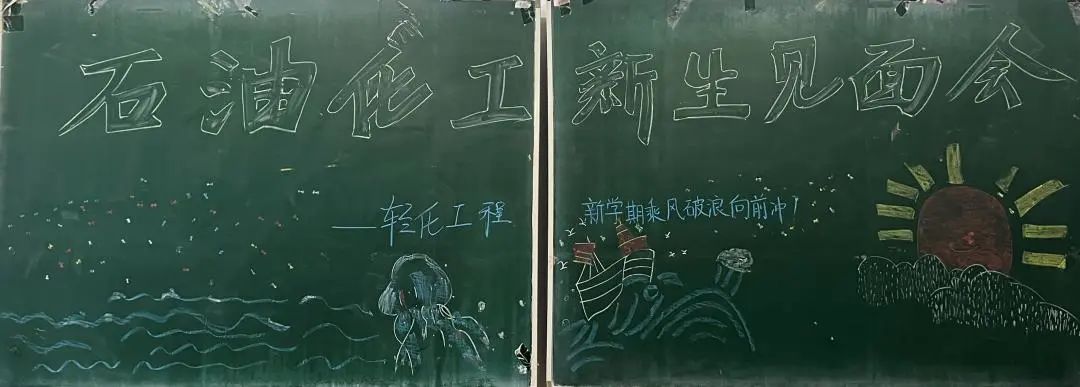 石油化工新生见面会
——轻化工程
新学期乘风破浪向前冲！